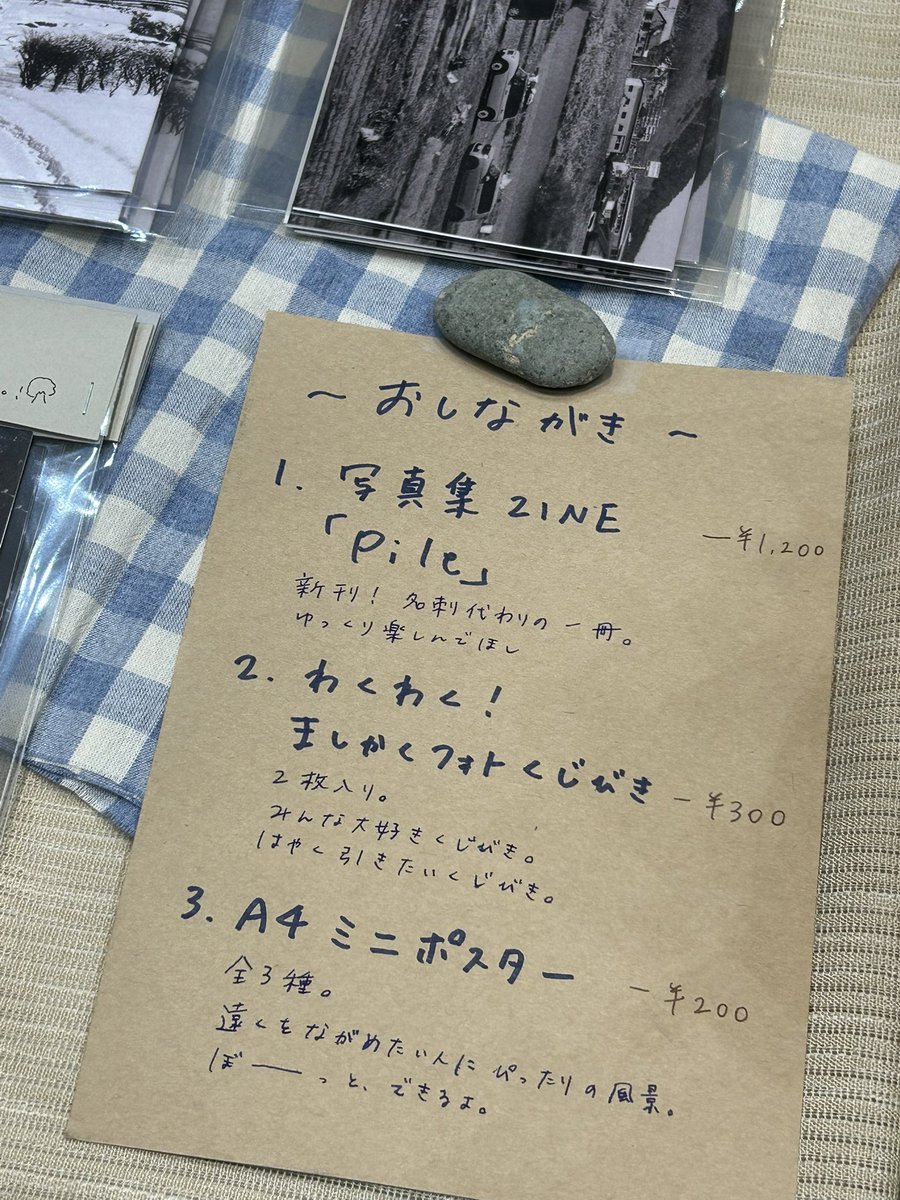 〜 おしながき 〜
1. 写真集 ZINE
「Pile」 ー¥1,200
新刊! 名刺代わりの一冊。
ゆっくり楽しんでほし
2. わくわく!
ましかくフォトくじびき ー¥300
2枚入り。
みんな大好きくじびき。
はやく引きたいくじびき。
3. A4 ミニポスター ー¥200
全3種。
遠くをながめたい人にぴったりの風景。
ぼーーっと、できるよ。